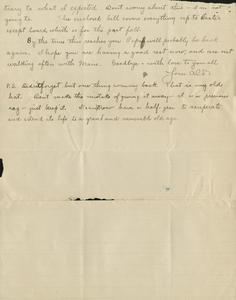 trary to what I expected. Don't worry about this - I'm not
going to. The inclosed bill covers everything up to date
except board, which is for the past fall.
By the time this reaches you Papa will probably be back
again. I hope you are having a good rest now, and are not
walking often with Mama. Goodbye - with love to you all
Your
P.S. Didn't forget but one thing coming back. That is my old
hat. Don't make the mistake of giving it away - it is a precious
rag - just keep it. Sometimes have a half you to renovate
and extend its life to a grand and venerable old age.